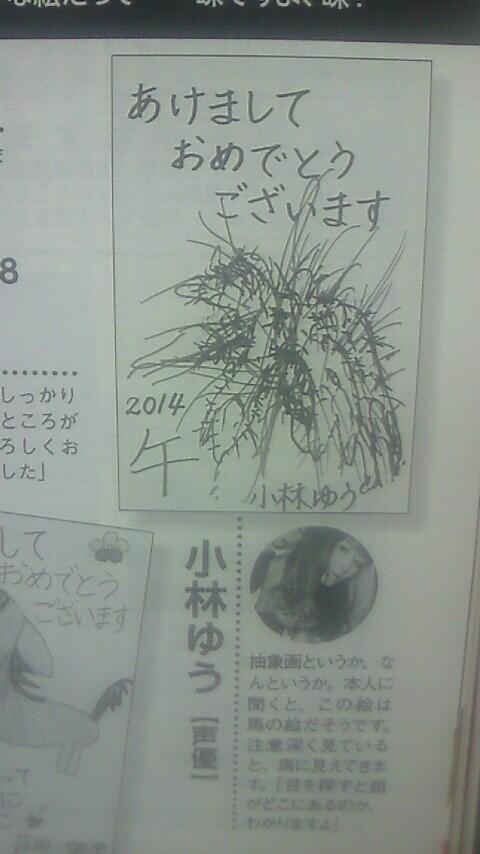 あけまして
おめでとう
ございます
2014
午
小林ゆう
小林ゆう【声優】
抽象画というか、な
んというか。本人に
聞くと、この絵は
馬の絵だそうです。
注意深く見ている
と、馬に見えてきま
す。「目を探すと頭
がどこにあるのか、
わかりますよ」
8
しっかり
ところが
ろしくお
した」
して
おめでとう
ございます
って
に